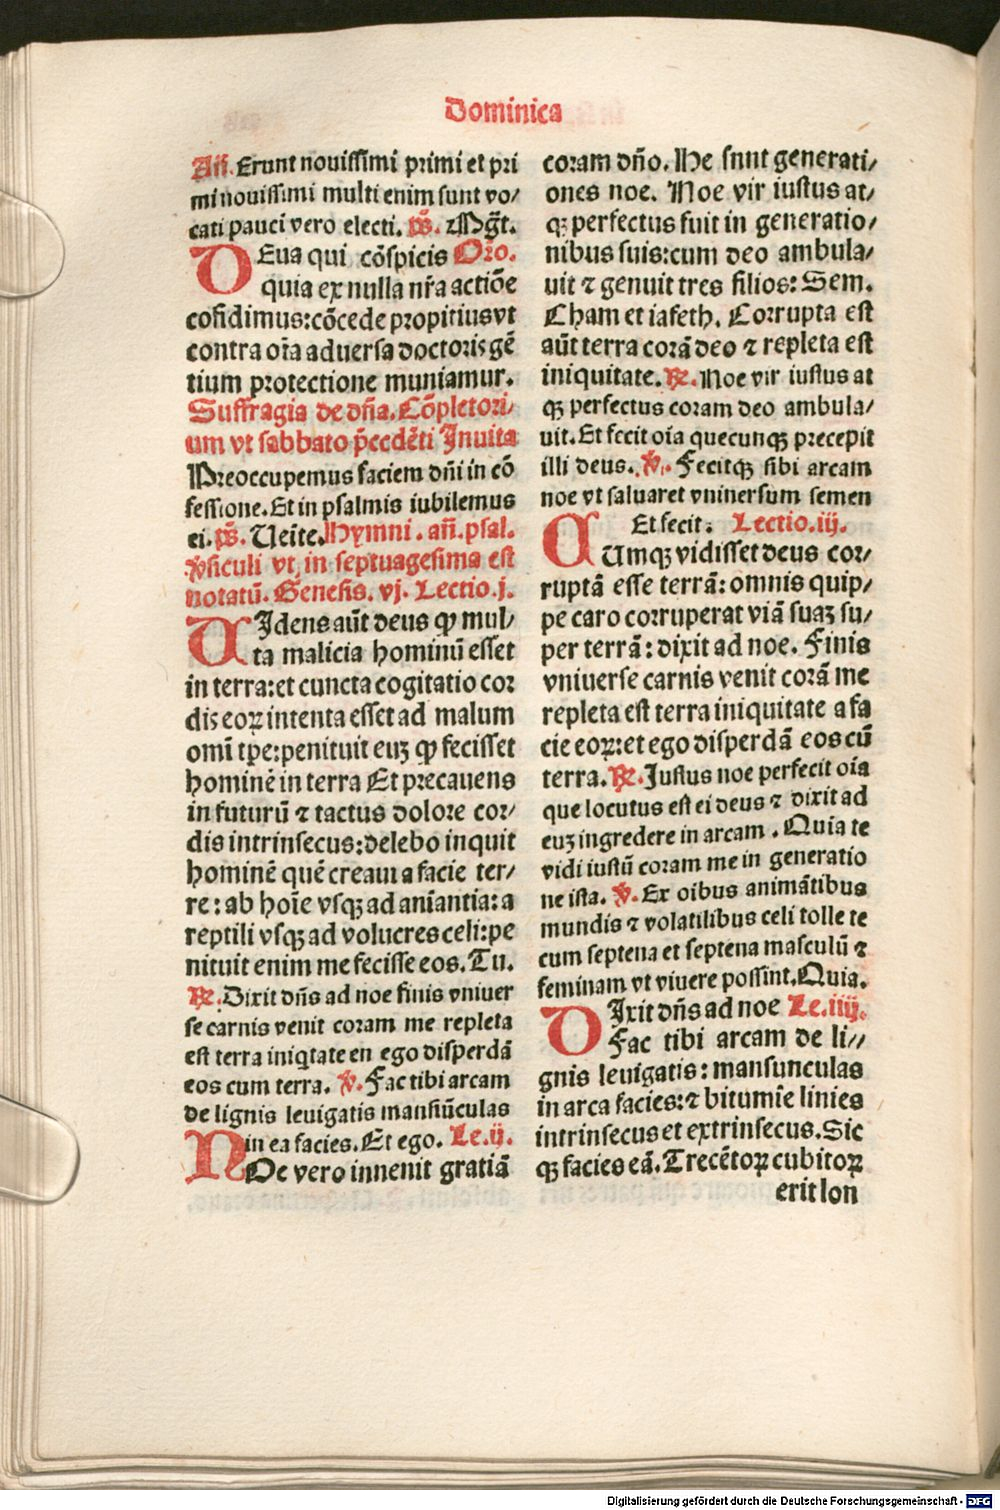 Dominica
Añ. Erunt nouissimi primi et pri
mi nouissimi multi enim sunt vo/
cati pauci vero electi. p̃s. ⁊Mg̃t.
DEus qui cõspicis Oro.
quia ex nulla nr̃a actiõe
cofidimus:cõcede propitius vt
contra oĩa aduersa doctoris gẽ
tium protectione muniamur.
Suffragia de dña. Cõpletori/
um vt sabbato p̃cedẽti Inuita
Preoccupemus faciem dñi in cõ
fessione. Et in psalmis iubilemus
ei. p̃s. Ueĩte. Hymni. añ. psal.
v̾siculi vt in septuagesima est
notatũ. Genesis. vj. Lectio. j.
UIdens aũt deus ꝙ mul/
ta malicia hominũ esset
in terra:et cuncta cogitatio cor
dis eoꝝ intenta esset ad malum
omĩ tꝑe:penituit euꝫ ꝙ fecisset
hominẽ in terra Et precauens
in futurũ ⁊ tactus dolore cor/
dis intrinsecus:delebo inquit
hominẽ quẽ creaui a facie ter/
re: ab hoĩe vsqꝫ ad aniantia: a
reptili vsqꝫ ad volucres celi:pe
nituit enim me fecisse eos. Tu.
℞. Dixit dñs ad noe finis vniuer
se carnis venit coram me repleta
est terra iniqtate en ego disperdã
eos cum terra. ℣. Fac tibi arcam
de lignis leuigatis mansiũculas
in ea facies. Et ego. Le. ij.
NOe vero innenit gratiã
coram dño. He snnt generati/
ones noe. Noe vir iustus at/
qꝫ perfectus fuit in generatio/
nibus suis:cum deo ambula/
uit ⁊ genuit tres filios: Sem.
Cham et iafeth. Corrupta est
aũt terra corã deo ⁊ repleta est
iniquitate. ℞. Noe vir iustus at
qꝫ perfectus coram deo ambula/
uit. Et fecit oĩa quecunqꝫ precepit
illi deus. ℣. Fecitqꝫ sibi arcam
noe vt saluaret vninersum semen
Et fecit: Lectio. iij.
CUmqꝫ vidisset deus cor/
ruptã esse terrã: omnis quip/
pe caro corruperat viã suaꝫ su/
per terrã: dixit ad noe. Finis
vniuerse carnis venit corã me
repleta est terra iniquitate a fa
cie eoꝝ:et ego disperdã eos cũ
terra. ℞. Justus noe perfecit oĩa
que locutus est ei deus ⁊ dixit ad
euꝫ ingredere in arcam. Quia te
vidi iustũ coram me in generatio
ne ista. ℣. Ex oibus animãtibus
mundis ⁊ volatilibus celi tolle te
cum septena et septena masculũ ⁊
feminam vt viuere possint. Quia.
DIxit dñs ad noe Le. iiij.
Fac tibi arcam de li//
gnis leuigatis: mansunculas
in arca facies:⁊ bitumĩe linies
intrinsecus et extrinsecus. Sic
qꝫ facies eã. Trecẽtoꝝ cubitoꝝ
erit lon
Digitalisierung gefördert durch die Deutsche Forschungsgemeinschaft - DFG